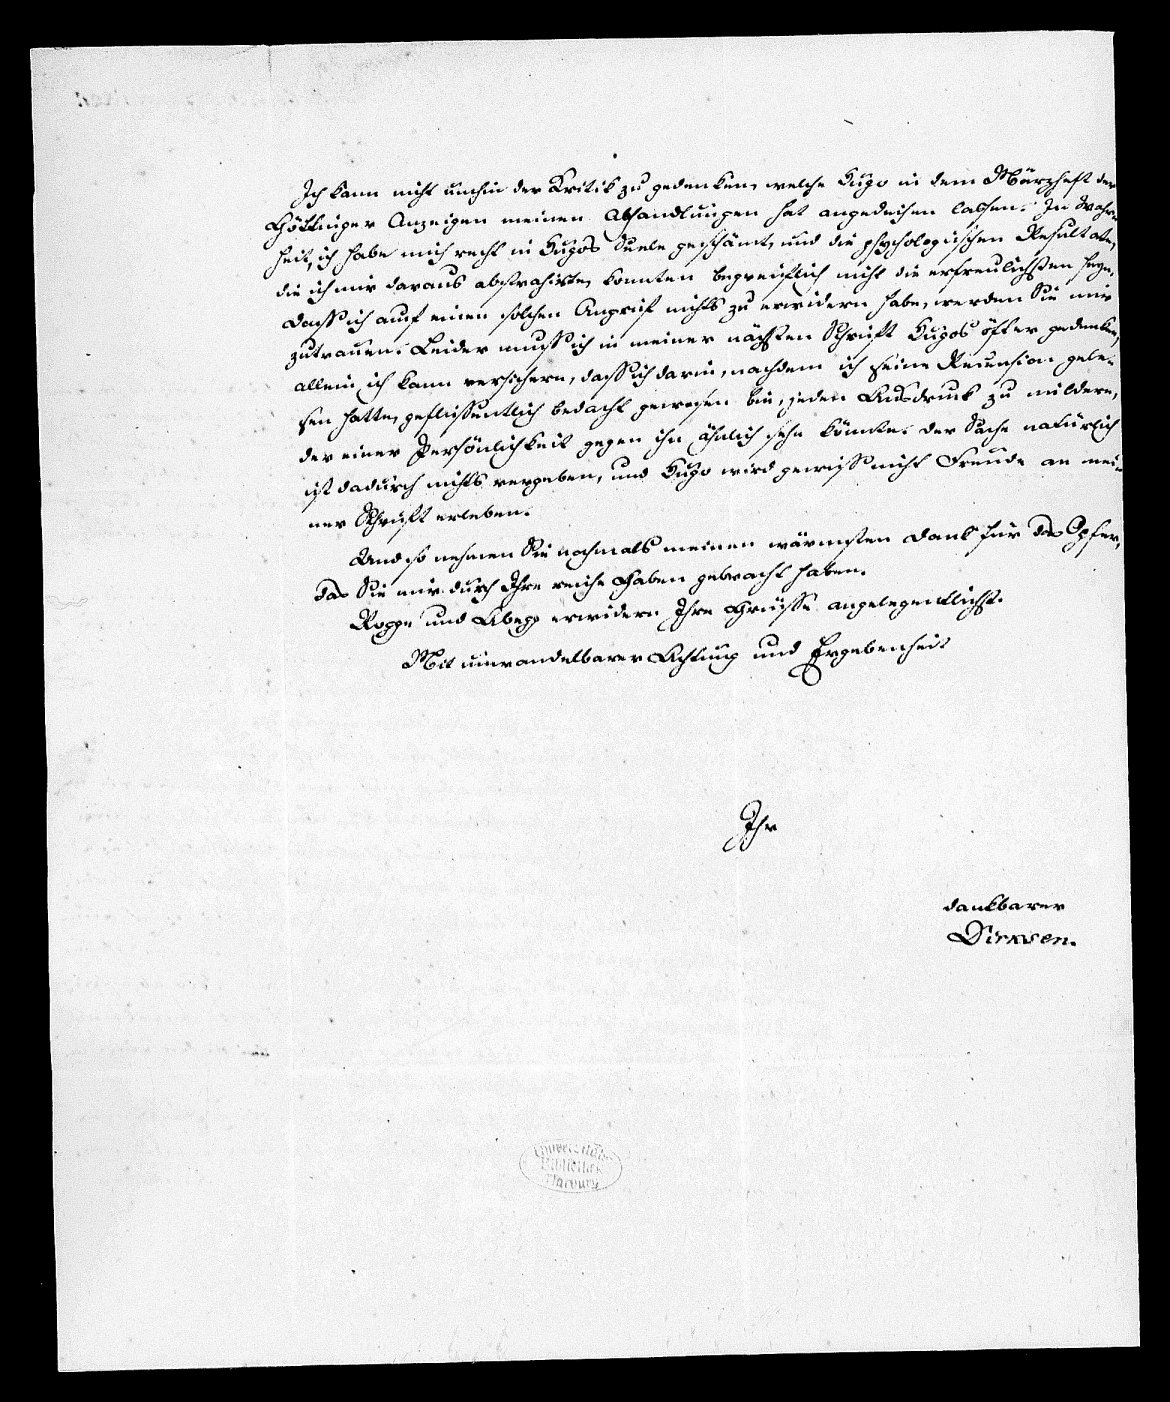 Ich kann nicht umhin der Kritik zu gedenken, welche Hugo in dem Märzheft der
Göttinger Anzeigen meinen Abhandlungen hat angedeihen lassen. In Wahr-
heit, ich habe mich recht in Hugos Seele geschämt, und die psychologischen Resultate,
die ich mir daraus abstrahirte, konnten begreiflich nicht die erfreulichsten seyn.
Dass ich auf einen solchen Angriff nichts zu erwidern habe, werden Sie mir
zutrauen. Leider muss ich in meiner nächsten Schrift Hugos öfter gedenken,
allein ich kann versichern, dass ich darin, nachdem ich seine Recension gele-
sen hatte, geflissentlich bedacht gewesen bin, jeden Ausdruck zu mildern,
der einer Persönlichkeit gegen ihn ähnlich sehn könnte. Der Sache natürlich
ist dadurch nichts vergeben, und Hugo wird gewiss nicht Freude an mei-
ner Schrift erleben.
Und so nehmen Sie nochmals meinen wärmsten Dank für das Opfer,
das Sie mir durch Ihre reiche Gaben gebracht haben.
Rogge und Abegg erwidern Ihre Grüsse angelegentlichst.
Mit unwandelbarer Achtung und Ergebenheit
Ihr
dankbarer
Dirksen.
Universitäts
Bibliothek
Marburg